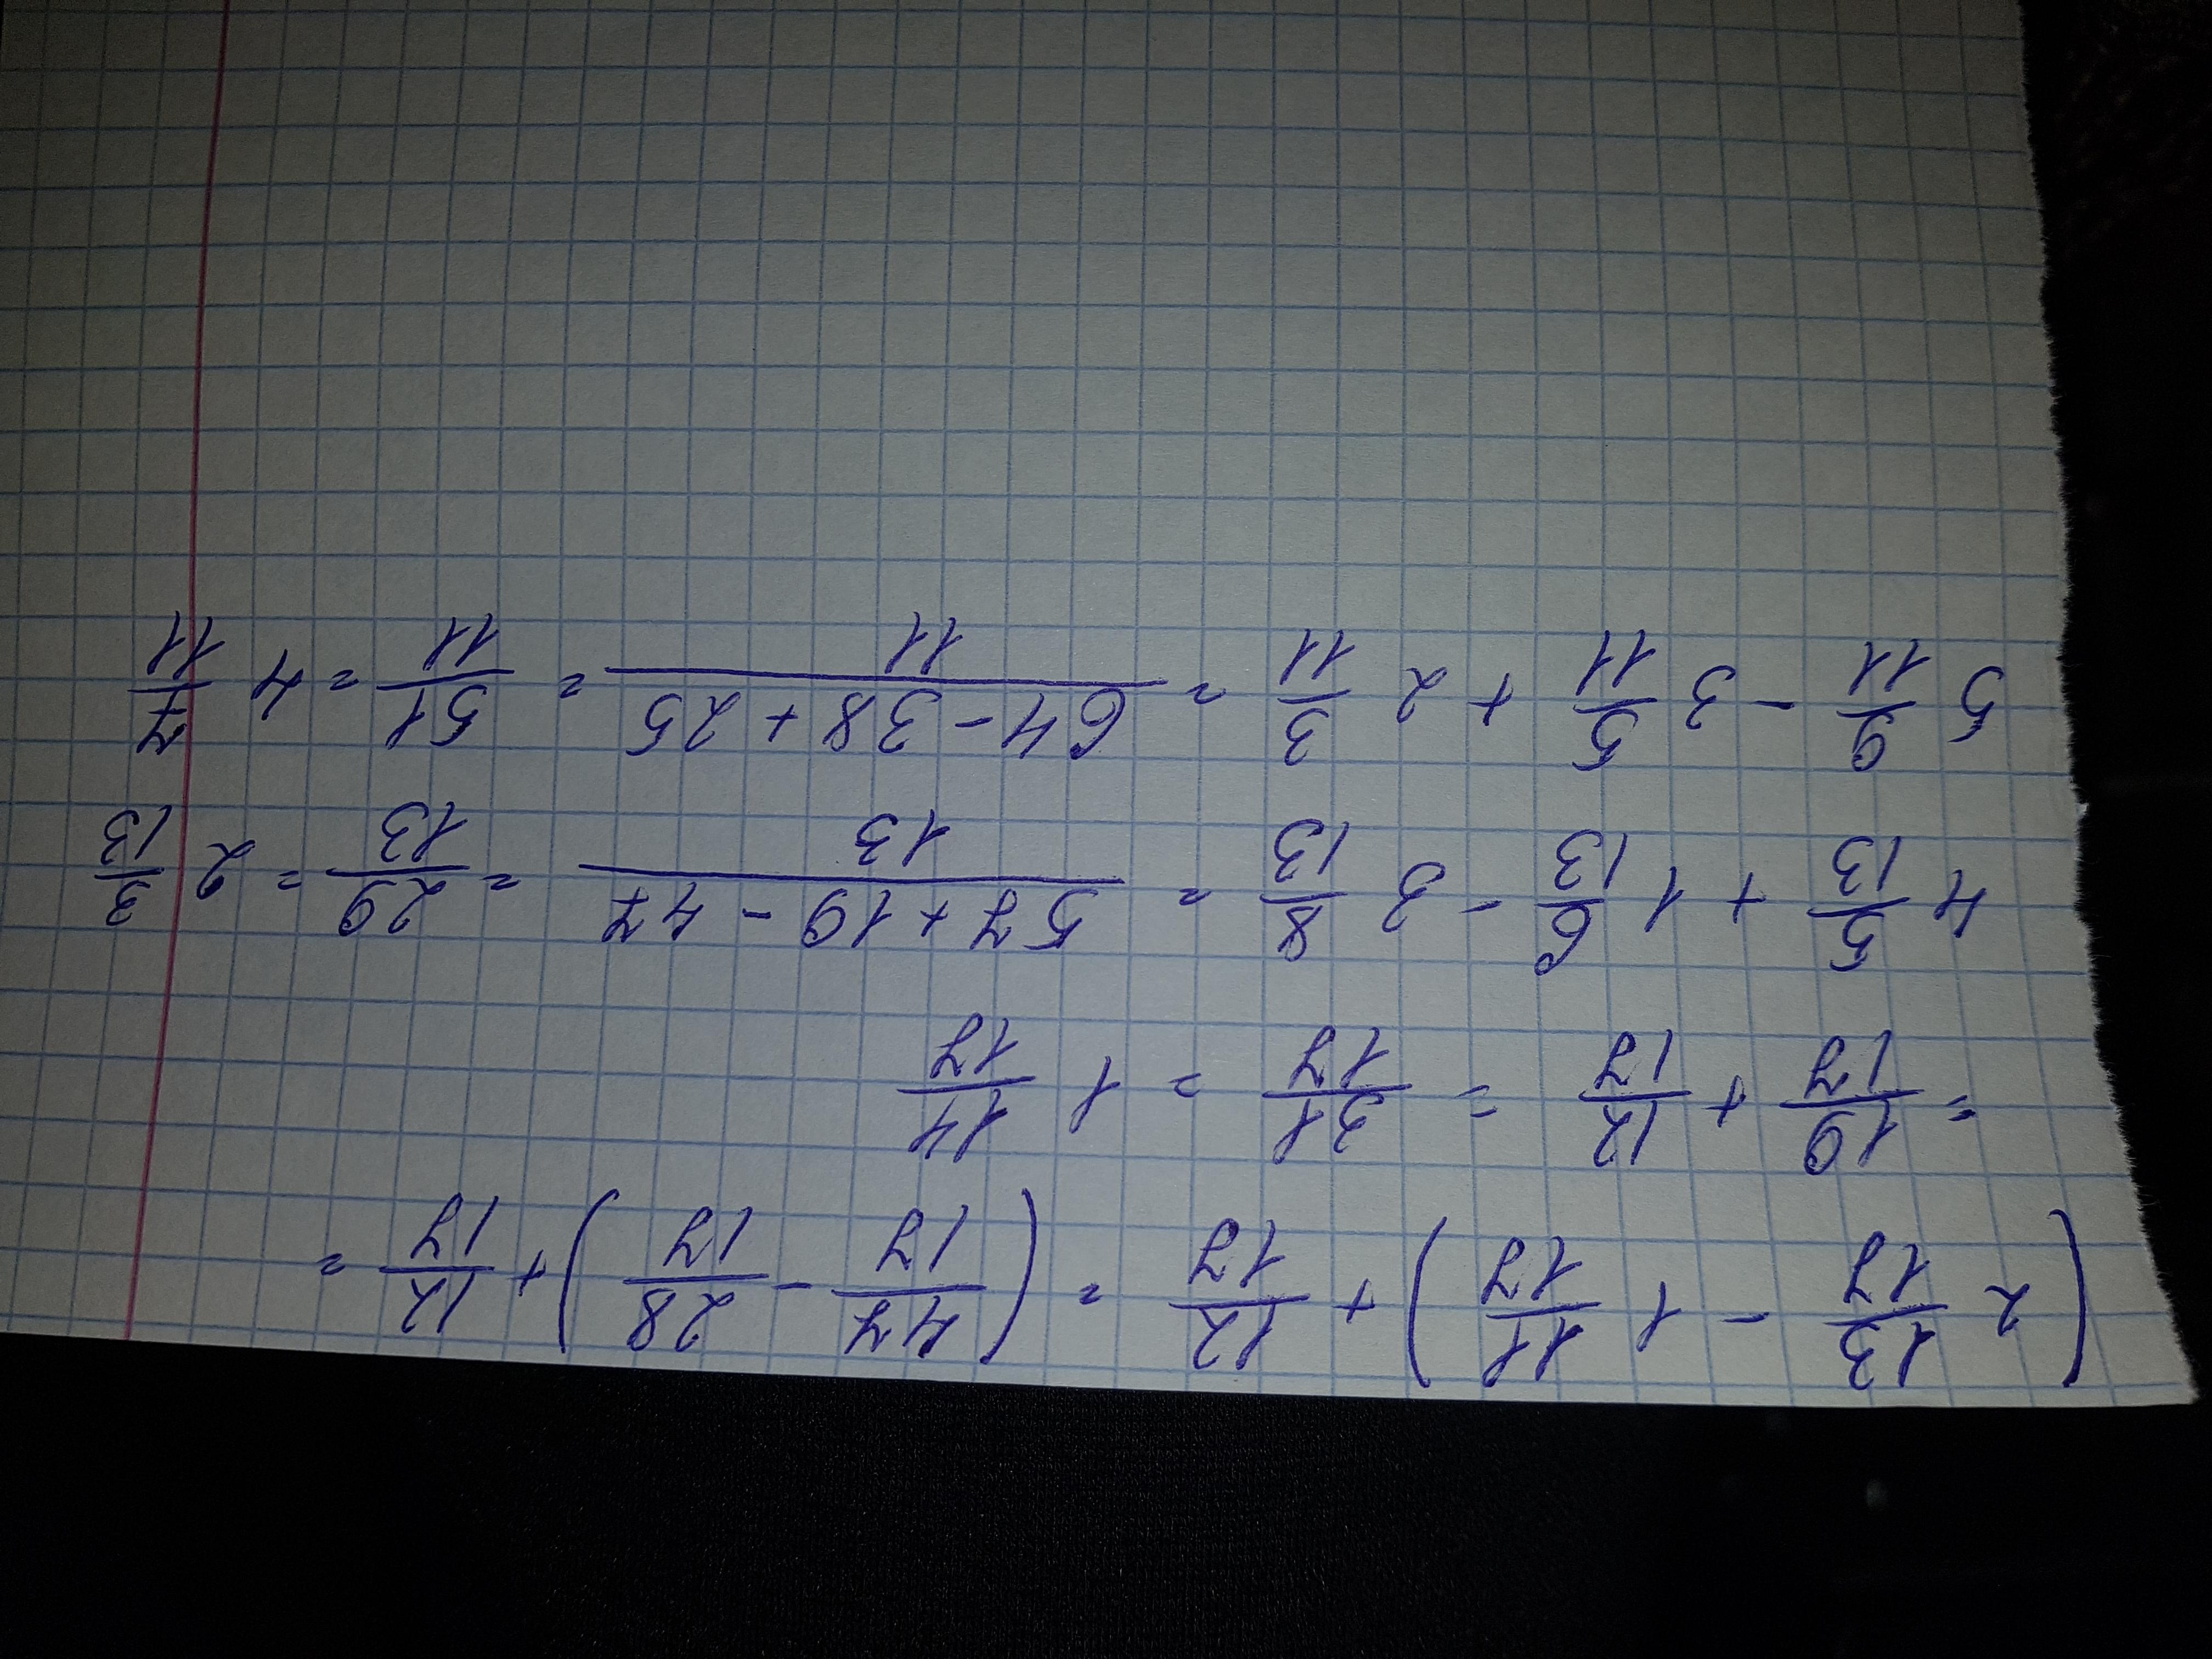 (2 13/17 - 1 11/17) + 12/17 = (47/17 - 28/17) + 12/17 =
= 19/17 + 12/17 = 31/17 = 1 14/17
4 5/13 + 1 6/13 - 3 8/13 = (57 + 19 - 47)/13 = 29/13 = 2 3/13
5 9/11 - 3 5/11 + 2 3/11 = (64 - 38 + 25)/11 = 51/11 = 4 7/11